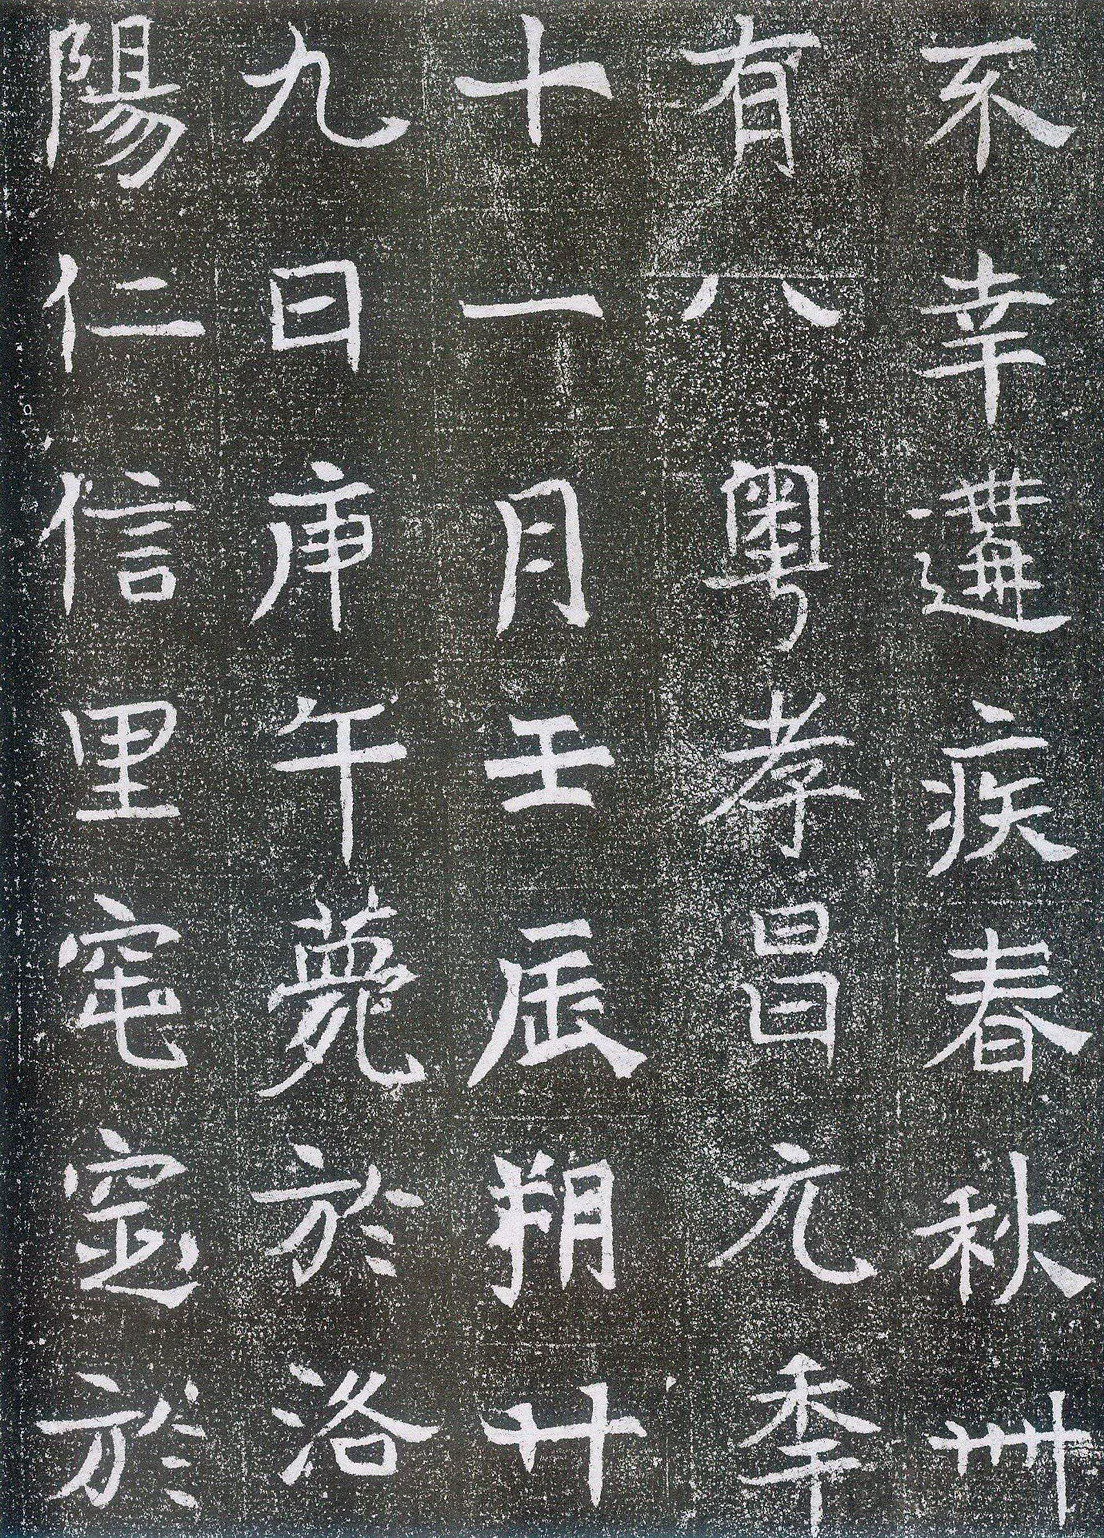 不幸遘疾春秋卌
有八粵孝昌元秊
十一月壬辰朔廿
九日庚午薨於洛
陽仁信里窀窆於